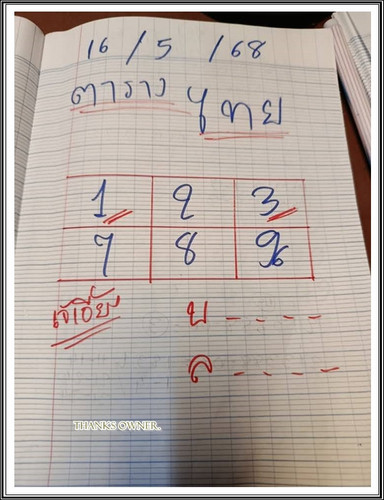 16 / 5 / 68
ตาราง ไทย
1 2 3
7 8 9
บ - - - -
ล - - - -
THANKS OWNER.